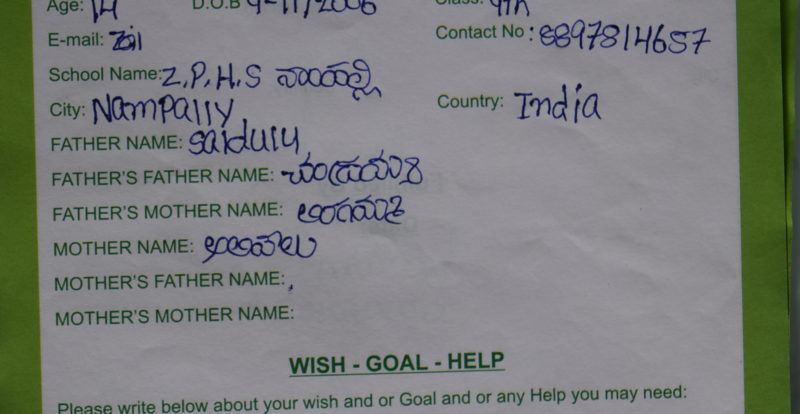 Age: 14 D.O.B 9-11/2006 Class: 9th
E-mail: Contact No: 8897814657
School Name: Z.P.H.S నాంపల్లి
City: Nampally Country: India
FATHER NAME: saidulu
FATHER'S FATHER NAME:
FATHER'S MOTHER NAME: అంగమ్మ
MOTHER NAME:
MOTHER'S FATHER NAME:
MOTHER'S MOTHER NAME:
WISH - GOAL - HELP
Please write below about your wish and or Goal and or any Help you may need: